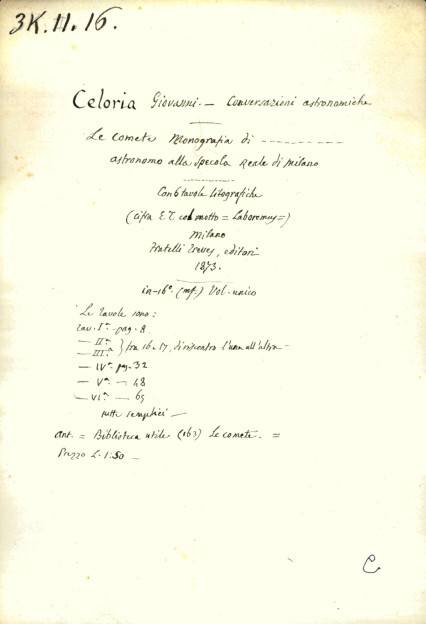 3K.II.16.
Celoria Giovanni. — Conversazioni astronomiche
Le comete Monografia di ----------
astronomo alla Specola Reale di Milano
Con 6 tavole litografiche
(cifra E T col motto = Laboremus =)
Milano
Fratelli Treves, editori
1873.
in-16º. (mf.) Vol. unico
Le tavole sono:
Tav. Iª. — pag. 8.
— IIª.
— IIIª. } fra 16 e 17, di riscontro l'una all'altra —
— IVª. pag. 32
— Vª. — 48
— VIª. — 65
tutte semplici —
Ant. = Biblioteca utile (163) Le comete. =
Prezzo L. 1:50 —
C